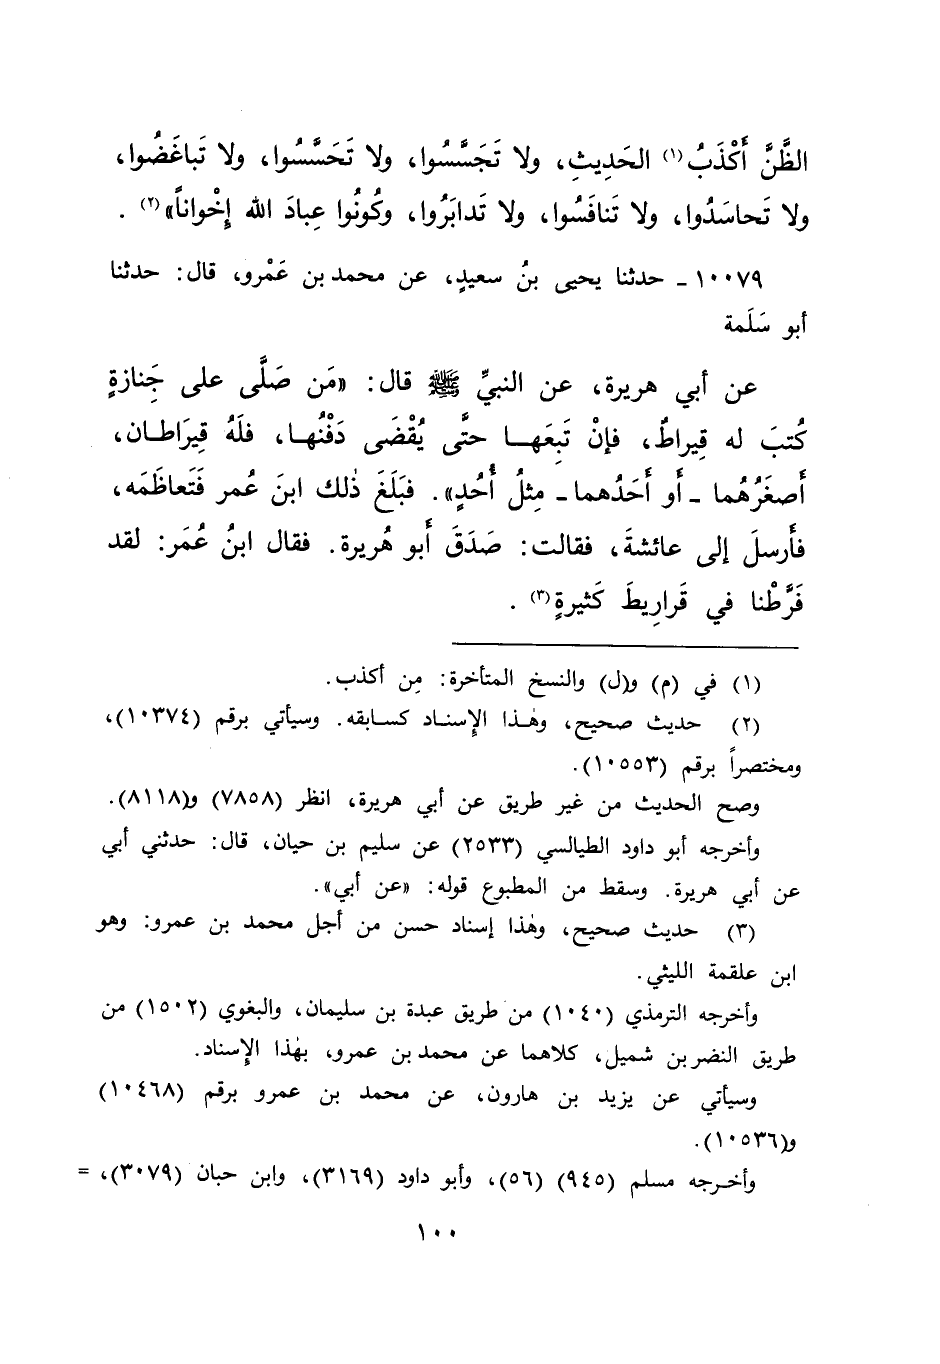 الظَّنَّ أَكْذَبُ (١) الحَدِيثِ، ولا تَجَسَّسُوا، ولا تَحَسَّسُوا، ولا تَباغَضُوا،
ولا تَحاسَدُوا، ولا تَنافَسُوا، ولا تَدابَرُوا، وكُونُوا عِبادَ الله إِخْواناً» (٢) .
١٠٠٧٩ ـ حدثنا يحيى بنُ سعيدٍ، عن محمد بن عَمْرو، قال: حدثنا
أبو سَلَمة
عن أبي هريرة، عن النبيِّ ﷺ قال: «مَن صَلَّى على جَنازةٍ
كُتبَ له قِيراطٌ، فإنْ تَبِعَهـا حتَّى يُقْضَى دَفْنُهـا، فلَهُ قِيَراطـان،
أَصغَرُهُما ـ أَو أَحَدُهما ـ مِثلُ أُحُدٍ». فبَلَغَ ذٰلك ابنَ عُمر فَتَعاظَمَه،
فأَرسلَ إلى عائشةَ، فقالت: صَدَقَ أَبو هُريرة. فقال ابنُ عُمَر: لقد
فَرَّطْنا في قَرارِيطَ كَثيرةٍ (٣) .
(١) في (م) و(ل) والنسخ المتأخرة: مِن أكذب.
(٢) حديث صحيح، وهٰـذا الإسنـاد كسـابقه. وسيأتي برقم (١٠٣٧٤)،
ومختصراً برقم (١٠٥٥٣).
وصح الحديث من غير طريق عن أبي هريرة، انظر (٧٨٥٨) و(٨١١٨).
وأخرجه أبو داود الطيالسي (٢٥٣٣) عن سليم بن حيان، قال: حدثني أبي
عن أبي هريرة. وسقط من المطبوع قوله: «عن أبي».
(٣) حديث صحيح، وهٰذا إسناد حسن من أجل محمد بن عمرو: وهو
ابن علقمة الليثي.
وأخرجه الترمذي (١٠٤٠) من طريق عبدة بن سليمان، والبغوي (١٥٠٢) من
طريق النضر بن شميل، كلاهما عن محمد بن عمرو، بهٰذا الإسناد.
وسيأتي عن يزيد بن هارون، عن محمد بن عمرو برقم (١٠٤٦٨)
و(١٠٥٣٦).
وأخـرجه مسلم (٩٤٥) (٥٦)، وأبو داود (٣١٦٩)، وابن حبان (٣٠٧٩)، =
١٠٠